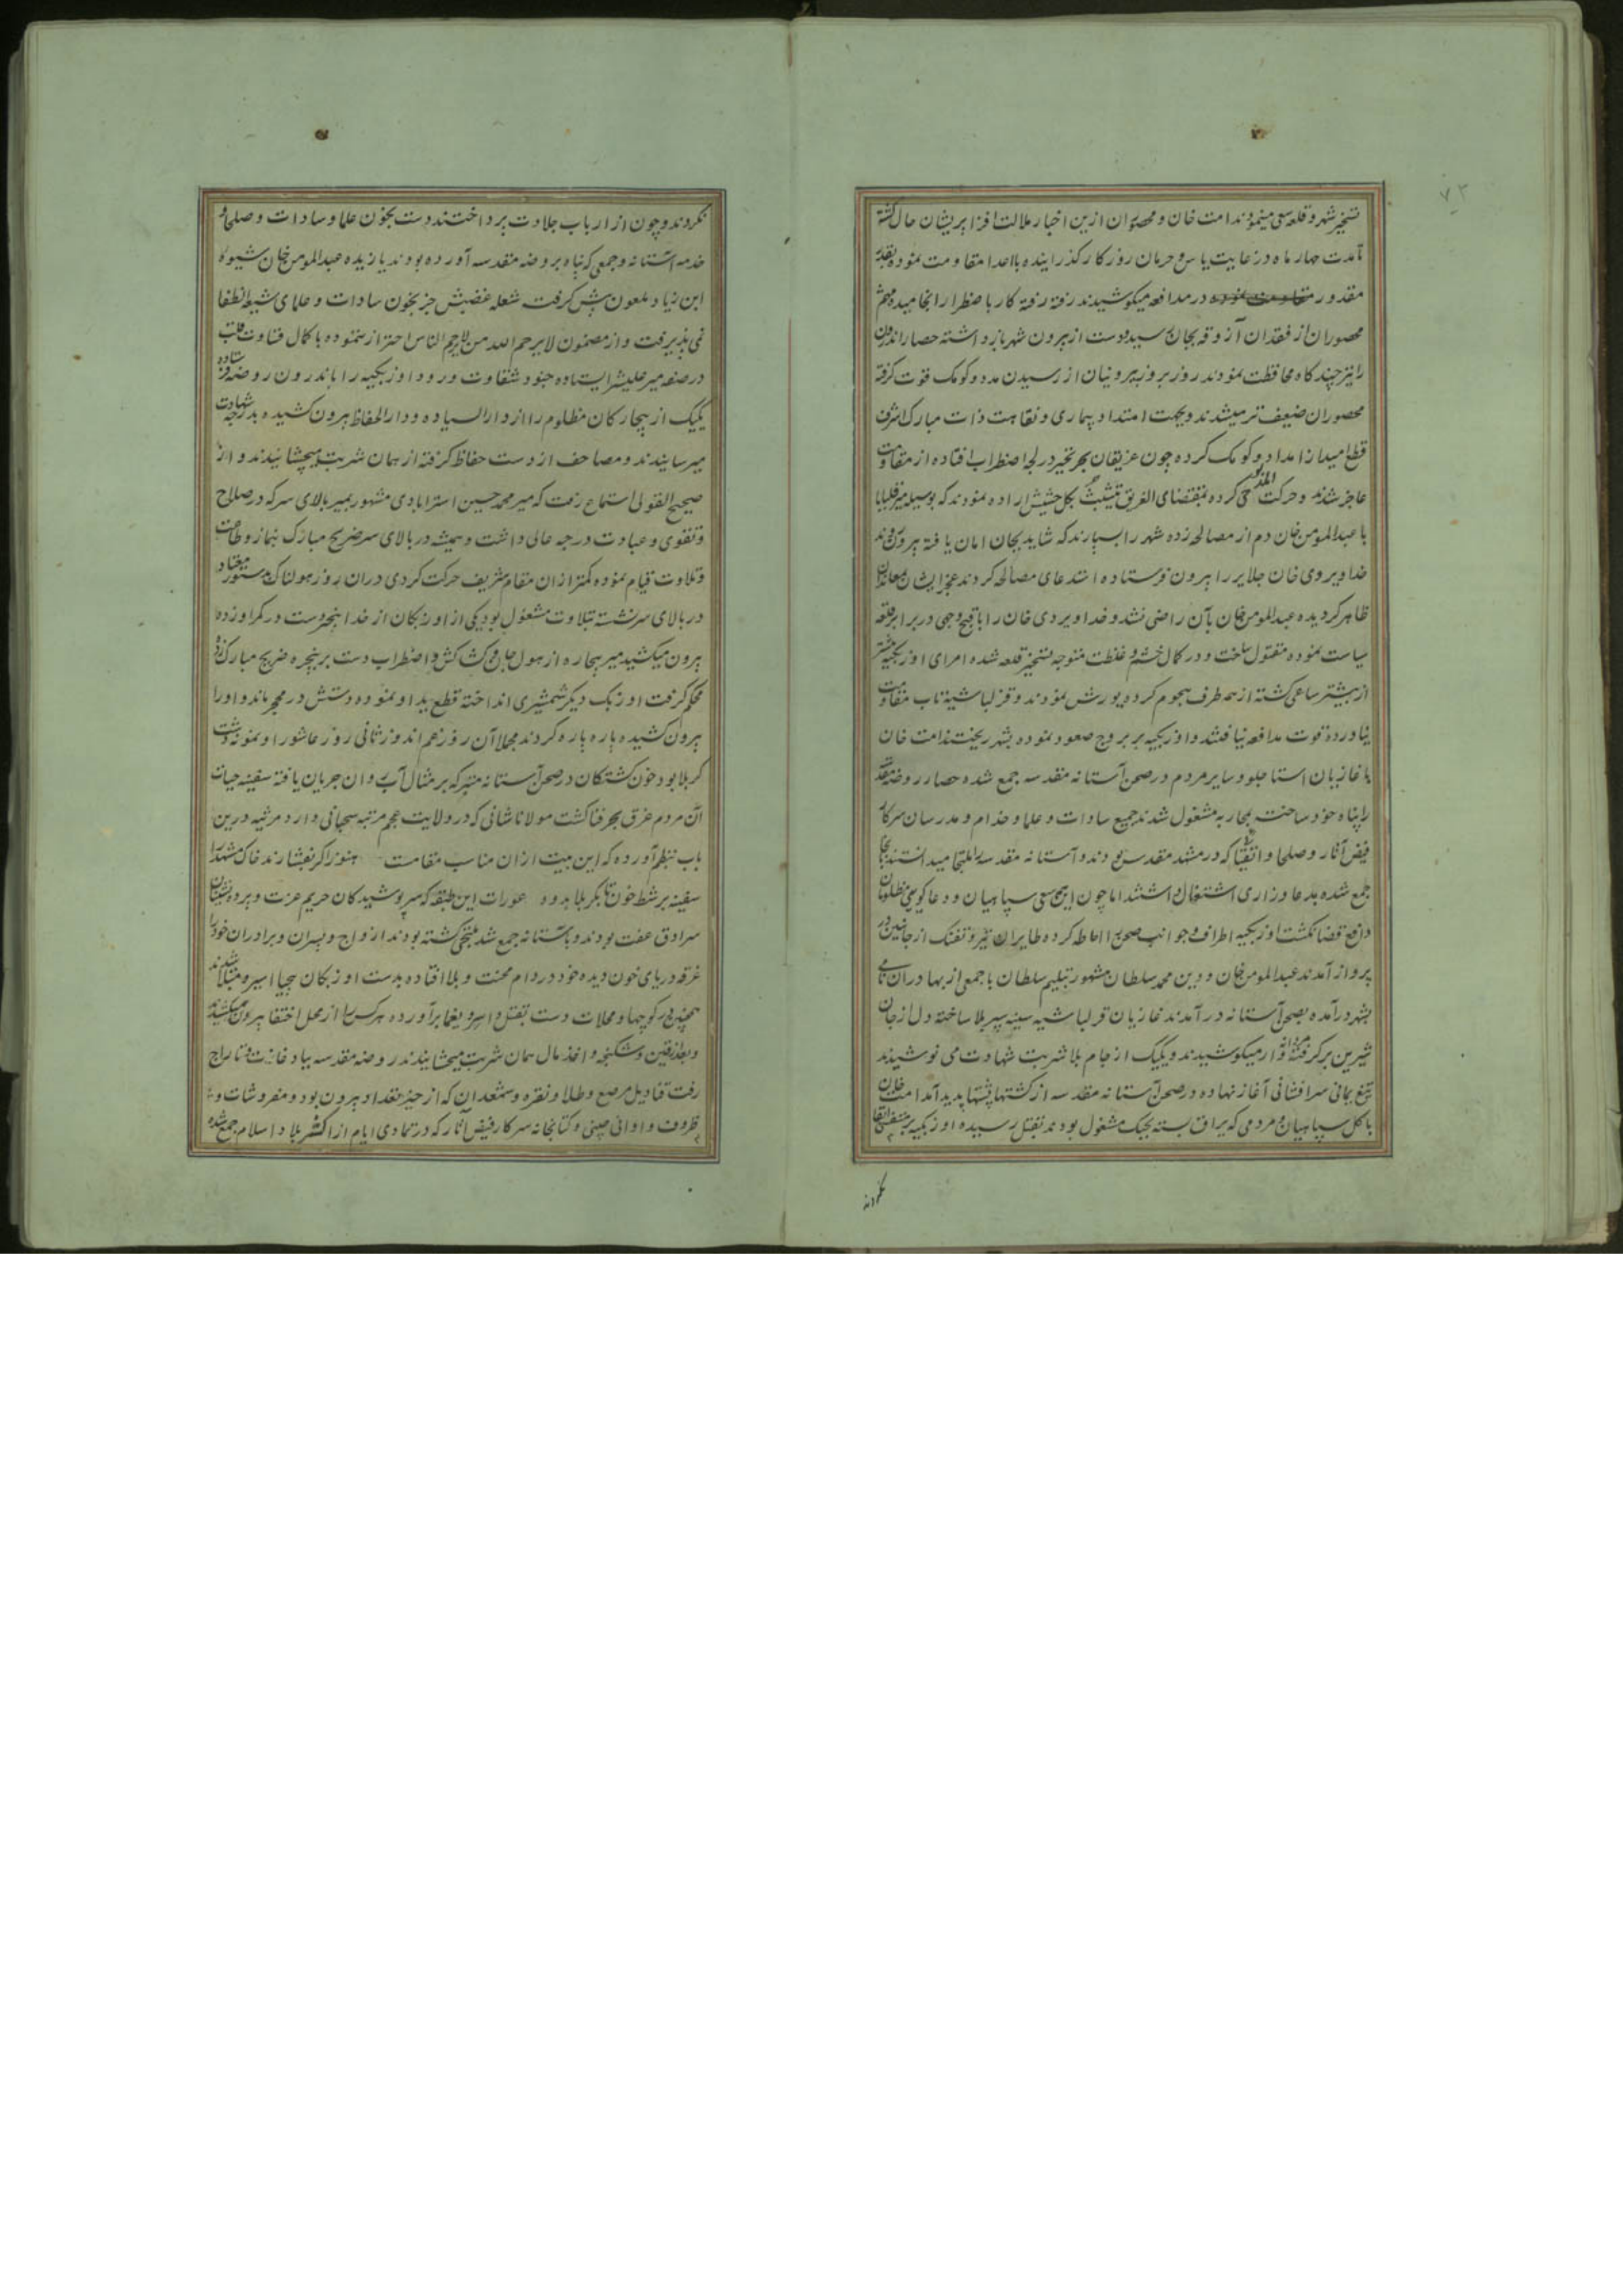 ۷۳
تسخیر شهر و قلعه سعی مینمودند امت خان و محصوران ازین اخبار ملالت افزا پریشان حال گشته
تا مدت چهار ماه در غایت یاس و حرمان روزگار گذرانیده با اعدا مقاومت نموده بقدر
مقدور در مدافعه میکوشیدند رفته رفته کار باضطرار انجامیده مهم
محصوران از فقدان آزوقه بجان رسید دست از بیرون شهر باز داشته حصار اندرون
را نیز چند گاه محافظت نمودند روز بروز بیرونیان از رسیدن مدد و کومک قوت گرفته
محصوران ضعیف تر میشدند و بجهت امتداد بیماری و نقاهت ذات مبارک اشرف
قطع امید از امداد و کومک کرده چون غریقان بحر تحیر در لجه اضطراب افتاده از مقاومت
عاجز شدند و حرکت المذبوحی کرده بمقتضای الغریق یتشبث بکل حشیش اراده نمودند که بوسیله میر قلبابا
با عبدالمومن خان دم از مصالحه زده شهر را بسپارند که شاید بجان امان یافته بیرون روند
خداویردی خان جلایر را بیرون فرستاده استدعای مصالحه کردند عجز ایشان بمعاندان
ظاهر گردیده عبدالمومن خان بآن راضی نشد و خداویردی خان را باقبح وجهی در برابر قلعه
سیاست نموده مقتول ساخت و در کمال خشم و غلظت متوجه تسخیر قلعه شده امرای اوزبکیه بیشتر
از پیشتر ساعی گشته از همه طرف هجوم کرده یورش نمودند و قزلباشیه تاب مقاومت
نیاورده قوت مدافعه نیافتند و اوزبکیه بر بروج صعود نموده بشهر ریختند امت خان
با غازیان استاجلو و سایر مردم در صحن آستانه مقدسه جمع شده حصار روضه مقدسه
را پناه خود ساخت بمحاربه مشغول شدند جمیع سادات و علما و خدام و مدرسان سرکار
فیض آثار و صلحا و اتقیا که در مشهد مقدس بودند و آستانه مقدسه را ملتجا میدانستند بجا
جمع شده بدعا و زاری اشتغال داشتند اما چون هیچ سعی سپاهیان و دعا گویی مظلومان
دافع قضا نگشت اوزبکیه اطراف و جوانب صحن را احاطه کرده طایران تیر و تفنک از جانبین در
پرواز آمدند عبدالمومن خان و دین محمد سلطان مشهور بتیلیم سلطان با جمعی از بهادران نامی
بشهر درآمده بصحن آستانه درآمدند غازیان قزلباشیه سینه سپر بلا ساخته دل از جان
شیرین برگرفته مردانه وار میکوشیدند و یکیک از جام بلا شربت شهادت می نوشیدند
تیغ یمانی سرافشانی آغاز نهاده در صحن آستانه مقدسه از کشتها پشتها پدید آمد امت خان
با کل سپاهیان و مردمی که یراق بسته بجنک مشغول بودند بقتل رسیده اوزبکیه بر متنفسی ابقا
نکردند
نکردند و چون از ارباب جلادت پرداختند دست بخون علما و سادات و صلحا و
خدمه آستانه و جمعی که پناه بروضه مقدسه آورده بودند یازیده عبدالمومن خان شیوه
ابن زیاد ملعون پیش گرفت شعله غضبش جز بخون سادات و علمای شیعه انطفا
نمی پذیرفت و از مضمون لا یرحم الله من لا یرحم الناس احتراز ننموده با کمال قساوت قلب
در صفه میر علیشیر ایستاده جنود شقاوت ورود اوزبکیه را باندرون روضه فرستاده
یکیک از بیچارگان مظلوم را از دارالسیاده و دارالحفاظ بیرون کشیده بدرجه شهادت
میرسانیدند و مصاحف از دست حفاظ گرفته از همان شربت میچشانیدند و از
صحیح القولی استماع رفت که میر محمد حسین استرابادی مشهور بمیر بالای سر که در صلاح
و تقوی و عبادت درجه عالی داشت و همیشه در بالای سر ضریح مبارک بنماز و طاعت
و تلاوت قیام نموده کمتر از ان مقام شریف حرکت کردی دران روز هولناک بدستور معتاد
در بالای سر نشسته بتلاوت مشغول بود یکی از اوزبکان از خدا بیخبر دست در کمر او زده
بیرون میکشید میر بیچاره از هول جان و کشاکش و اضطراب دست بر پنجره ضریح مبارک زده
محکم گرفت اوزبک دیگر شمشیری انداخته قطع ید او نموده دستش در محجر ماند و او را
بیرون کشیده پاره پاره کردند مجملا آن روز غم اندوز ثانی روز عاشورا و نمونه دشت
کربلا بود خون کشتگان در صحن آستانه متبرکه بر مثال آب روان جریان یافته سفینه حیات
آن مردم غرق بحر فنا گشت مولانا شانی که در ولایت عجم مرتبه سحبانی دارد مرثیه درین
باب بنظم آورده که این بیت از ان مناسب مقامست هنوز اگر بفشارند خاک مشهد را
سفینه بر شط خون تا بکربلا بدود عورات این طبقه که سر پوشیدگان حریم عزت و پرده نشینان
سرادق عفت بودند و بآستانه جمع شده ملتجی گشته بودند ازواج و پسران و برادران خود را
غرقه دریای خون دیده خود در دام محنت و بلا افتاده بدست اوزبکان بیحیا اسیر و مبتلا شدند
همچنین در کوچها و محلات دست بقتل و اسر و یغما برآورده هر کس را از محل اختفا بیرون میکشیدند
و بعد از تعین و شکنجه و اخذ مال همان شربت میچشانیدند روضه مقدسه بباد غارت و تاراج
رفت قنادیل مرصع و طلا و نقره و شمعدان که از حیز تعداد بیرون بود و مفروشات و
ظروف و اوانی چینی و کتابخانه سرکار فیض آثار که در تمادی ایام از اکثر بلاد اسلام جمع شده